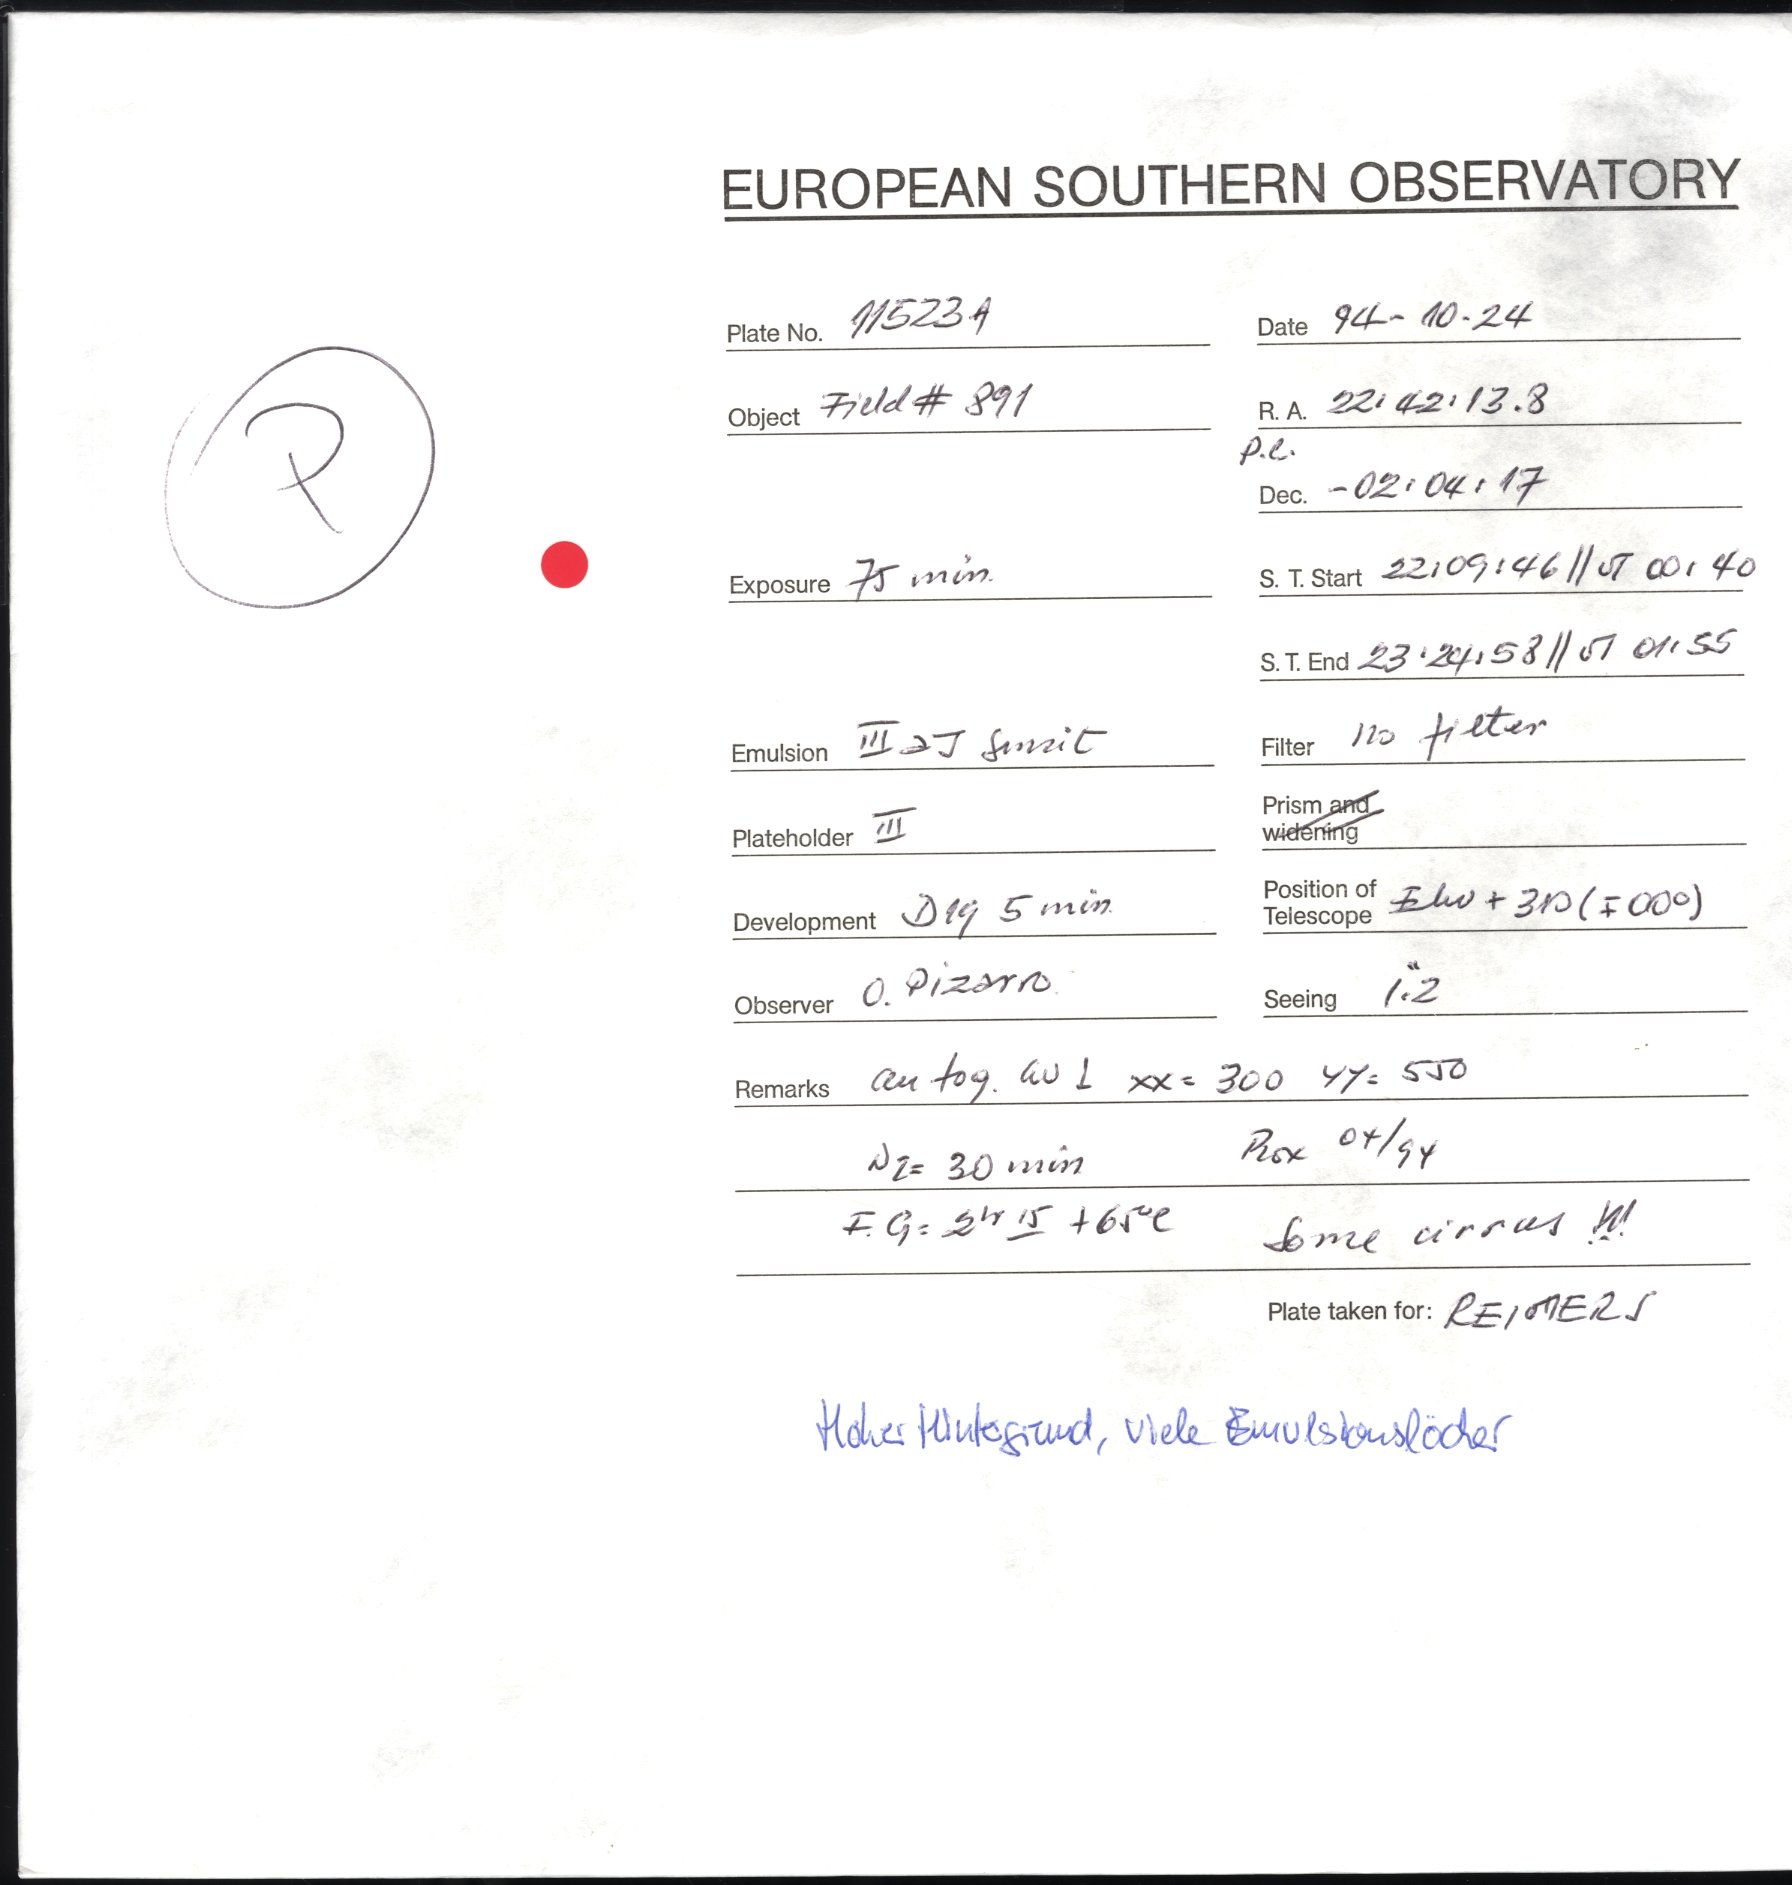 EUROPEAN SOUTHERN OBSERVATORY
Plate No. 11523A
Date 94-10-24
Object Field # 891
R. A. 22:42:13.8
P
Dec. -02:04:17
Exposure 75 min.
S. T. Start 22:09:46 // UT 00:40
S. T. End 23:24:58 // UT 01:55
Emulsion III aJ
Filter no filter
Plateholder III
Prism and
widening
Development D19 5 min.
Position of
Telescope
Observer O. Pizarro
Seeing 1".2
Remarks xx = 300 yy = 550
N2= 30 min
04/94
+65°C
Some cirrus !!!
Plate taken for: REIMERS
Hoher Hintergrund, viele Emulsionslöcher